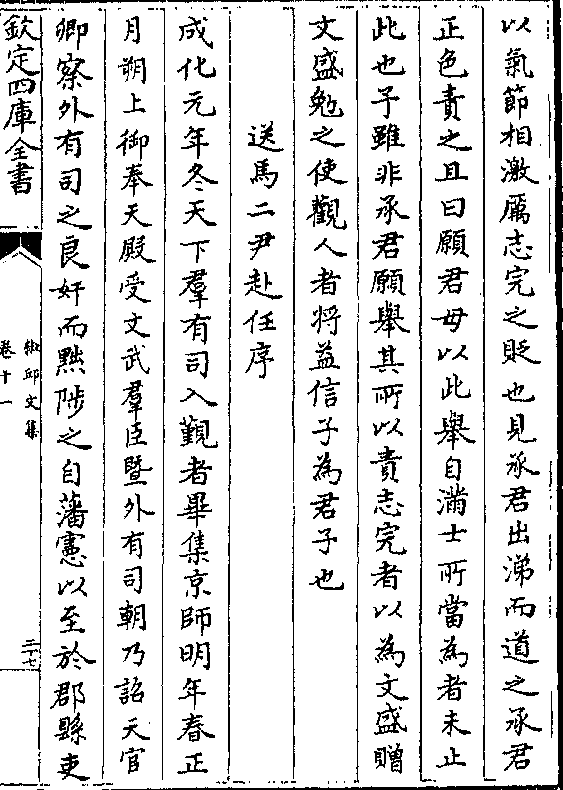 以氣節相激厲志完之貶也見承君出涕而道之承君
正色責之且曰願君毋以此舉自滿士所當為者未止
此也予雖非承君願舉其所以責志完者以為文盛贈
文盛勉之使觀人者將益信予為君子也
送馬二尹赴任序
成化元年冬天下羣有司入覲者畢集京師明年春正
月朔上御奉天殿受文武羣臣暨外有司朝乃詔天官
卿察外有司之良奸而黜陟之自藩憲以至於郡縣吏
欽定四庫全書
椒邱文集
卷十一
三十七